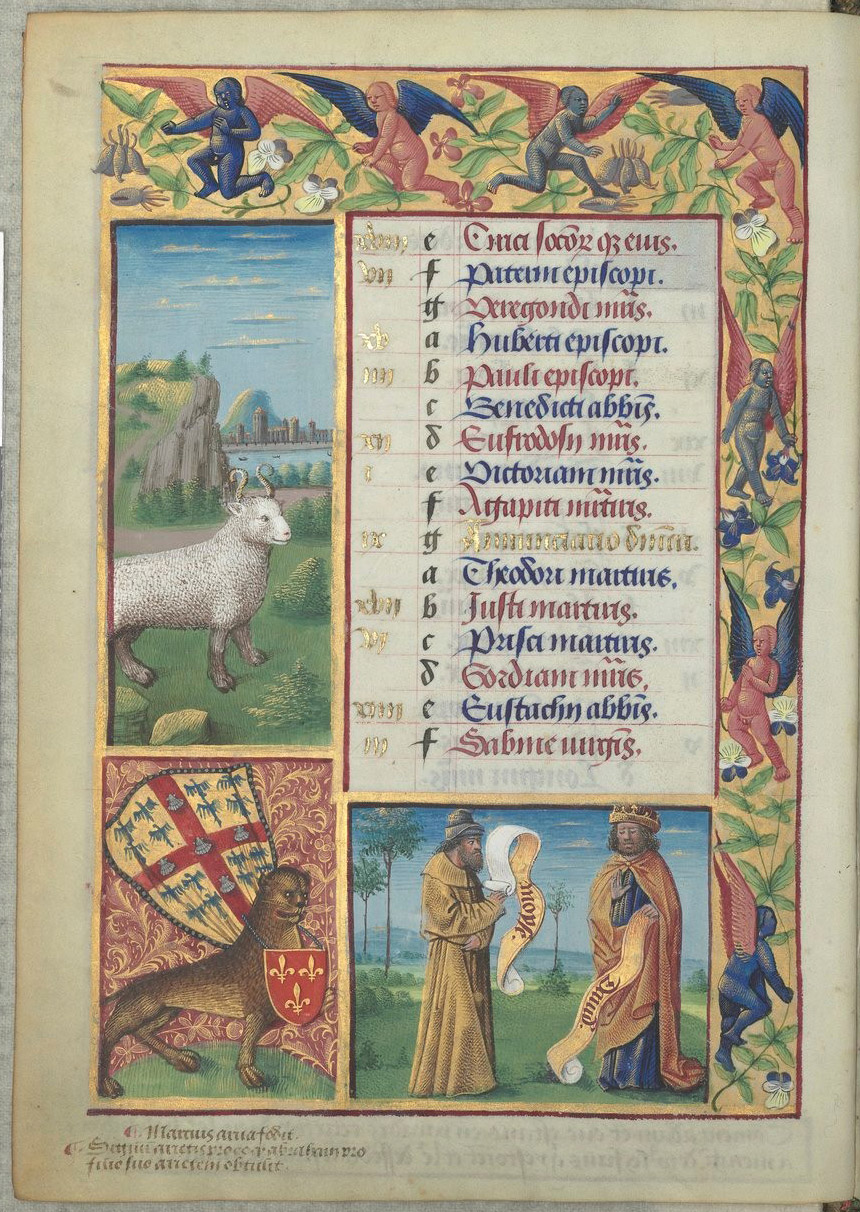 e Cirici socior qz eius.
vii f Paterni episcopi.
g Veregondi mris.
xv a Huberti episcopi.
iiii b Pauli episcopi.
c Benedicti abbis.
xii d Eufrodosii mris.
i e Victoriani mris.
f Agapiti mrturis.
ix g Annunciatio dnica.
a Theodori martiris.
xvii b Justi martiris.
vi c Prisci martiris.
d Gordiani mris.
xiiii e Eustachii abbis.
iii f Sabine uirgis.
David.
Marcius arua fodit.
Signum arietis pro eo qz abraham pro
filio suo arietem obtulit.